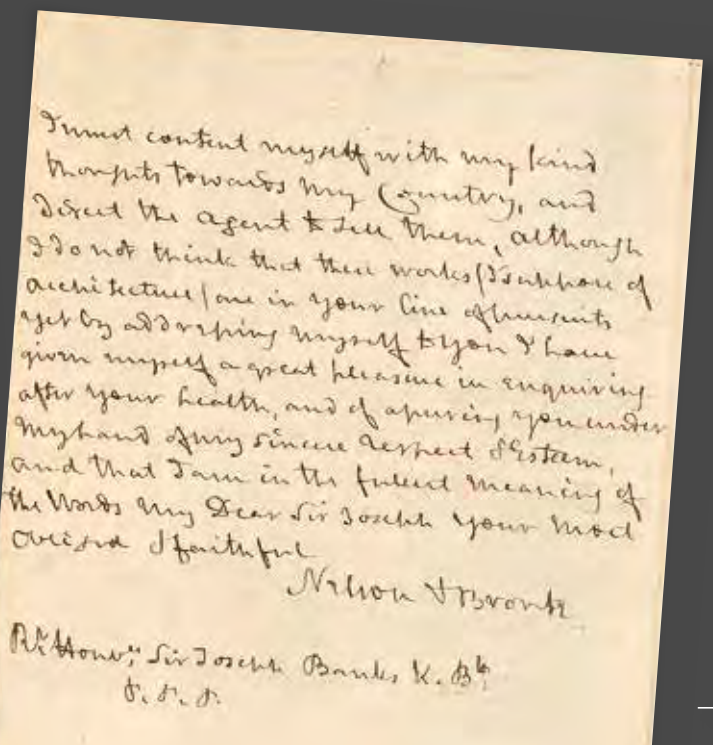 I must content myself with my kind
thoughts towards my Country, and
direct the agent to sell them, although
I do not think that these works (I suppose of
architecture) are in your line of pursuits
yet by addressing myself to you I have
given myself a great pleasure in enquiring
after your health, and of assuring you under
my hand of my sincere respect & Esteem,
and that I am in the fullest meaning of
the Words My Dear Sir Joseph your most
obliged & faithful
Nelson & Bronte
Rt. Honble: Sir Joseph Banks K. Bt.
&. &. &.